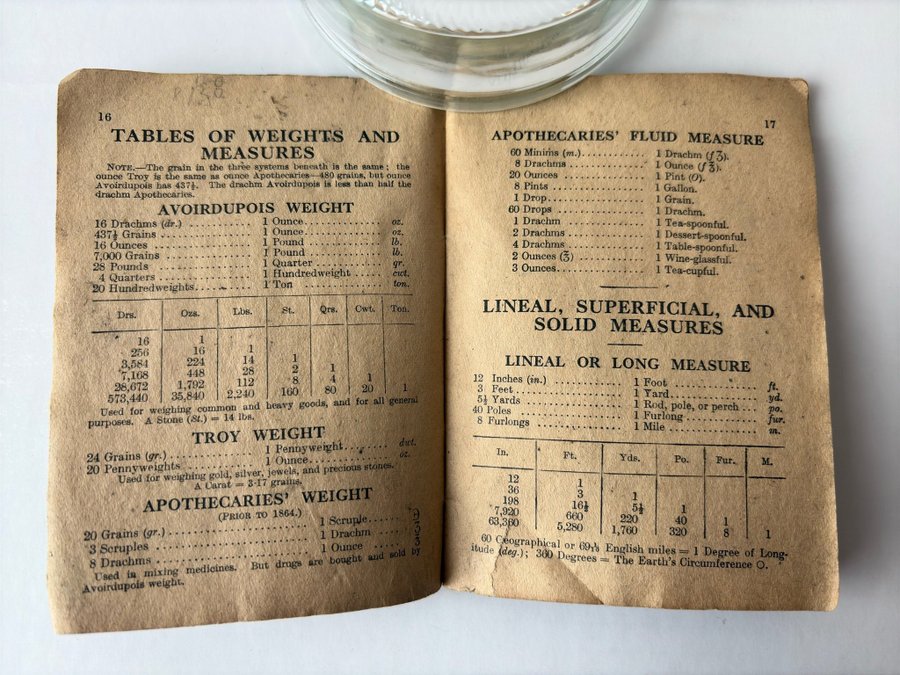 16
TABLES OF WEIGHTS AND
MEASURES
NOTE.—The grain in the three systems beneath is the same; the
ounce Troy is the same as ounce Apothecaries—480 grains, but ounce
Avoirdupois has 437½. The drachm Avoirdupois is less than half the
drachm Apothecaries.
AVOIRDUPOIS WEIGHT
16 Drachms (dr.) 1 Ounce oz.
437½ Grains 1 Ounce oz.
16 Ounces 1 Pound lb.
7,000 Grains 1 Pound lb.
28 Pounds 1 Quarter qr.
4 Quarters 1 Hundredweight cwt.
20 Hundredweights 1 Ton ton.
Drs. Ozs. Lbs. St. Qrs. Cwt. Ton.
16 1
256 16 1
3,584 224 14 1
7,168 448 28 2 1
28,672 1,792 112 8 4 1
573,440 35,840 2,240 160 80 20 1
Used for weighing common and heavy goods, and for all general
purposes. A Stone (St.) = 14 lbs.
TROY WEIGHT
24 Grains (gr.) 1 Pennyweight dwt.
20 Pennyweights 1 Ounce oz.
Used for weighing gold, silver, jewels, and precious stones.
A Carat = 3·17 grains.
APOTHECARIES' WEIGHT
(PRIOR TO 1864.)
20 Grains (gr.) 1 Scruple
3 Scruples 1 Drachm
8 Drachms 1 Ounce
Used in mixing medicines. But drugs are bought and sold by
Avoirdupois weight.
17
APOTHECARIES' FLUID MEASURE
60 Minims (m.) 1 Drachm (f ʒ).
8 Drachms 1 Ounce (f ℥).
20 Ounces 1 Pint (O).
8 Pints 1 Gallon.
1 Drop 1 Grain.
60 Drops 1 Drachm.
1 Drachm 1 Tea-spoonful.
2 Drachms 1 Dessert-spoonful.
4 Drachms 1 Table-spoonful.
2 Ounces (℥) 1 Wine-glassful.
3 Ounces 1 Tea-cupful.
LINEAL, SUPERFICIAL, AND
SOLID MEASURES
LINEAL OR LONG MEASURE
12 Inches (in.) 1 Foot ft.
3 Feet 1 Yard yd.
5½ Yards 1 Rod, pole, or perch po.
40 Poles 1 Furlong fur.
8 Furlongs 1 Mile m.
In. Ft. Yds. Po. Fur. M.
12 1
36 3 1
198 16½ 5½ 1
7,920 660 220 40 1
63,360 5,280 1,760 320 8 1
60 Geographical or English miles = 1 Degree of Long-
itude (deg.); 360 Degrees = The Earth's Circumference O.